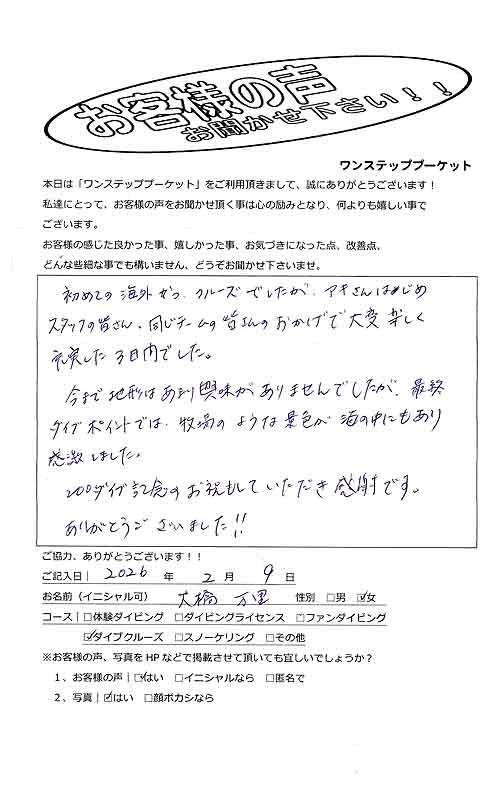 お客様の声
お聞かせ下さい！！
ワンステッププーケット
本日は「ワンステッププーケット」をご利用頂きまして、誠にありがとうございます！
私達にとって、お客様の声をお聞かせ頂く事は心の励みとなり、何よりも嬉しい事で
ございます。
お客様の感じた良かった事、嬉しかった事、お気づきになった点、改善点、
どんな些細な事でも構いません、どうぞお聞かせ下さいませ。
初めての海外かつ、クルーズでしたが、アキさんはじめ
スタッフの皆さん、同じチームの皆さんのおかげで大変楽しく
充実した3日間でした。
今まで地形はあまり興味がありませんでしたが、最終
ダイブポイントでは、牧場のような景色が海の中にもあり
感激しました。
200ダイブ記念のお祝もしていただき感謝です。
ありがとうございました!!
ご協力、ありがとうございます！！
ご記入日| 2026 年 2 月 9 日
お名前（イニシャル可） 大橋 万里 性別 □男 ☑女
コース|□体験ダイビング □ダイビングライセンス □ファンダイビング
☑ダイブクルーズ □スノーケリング □その他
※お客様の声、写真を HP などで掲載させて頂いても宜しいでしょうか？
１、お客様の声|☑はい □イニシャルなら □匿名で
２、写真|☑はい □顔ボカシなら